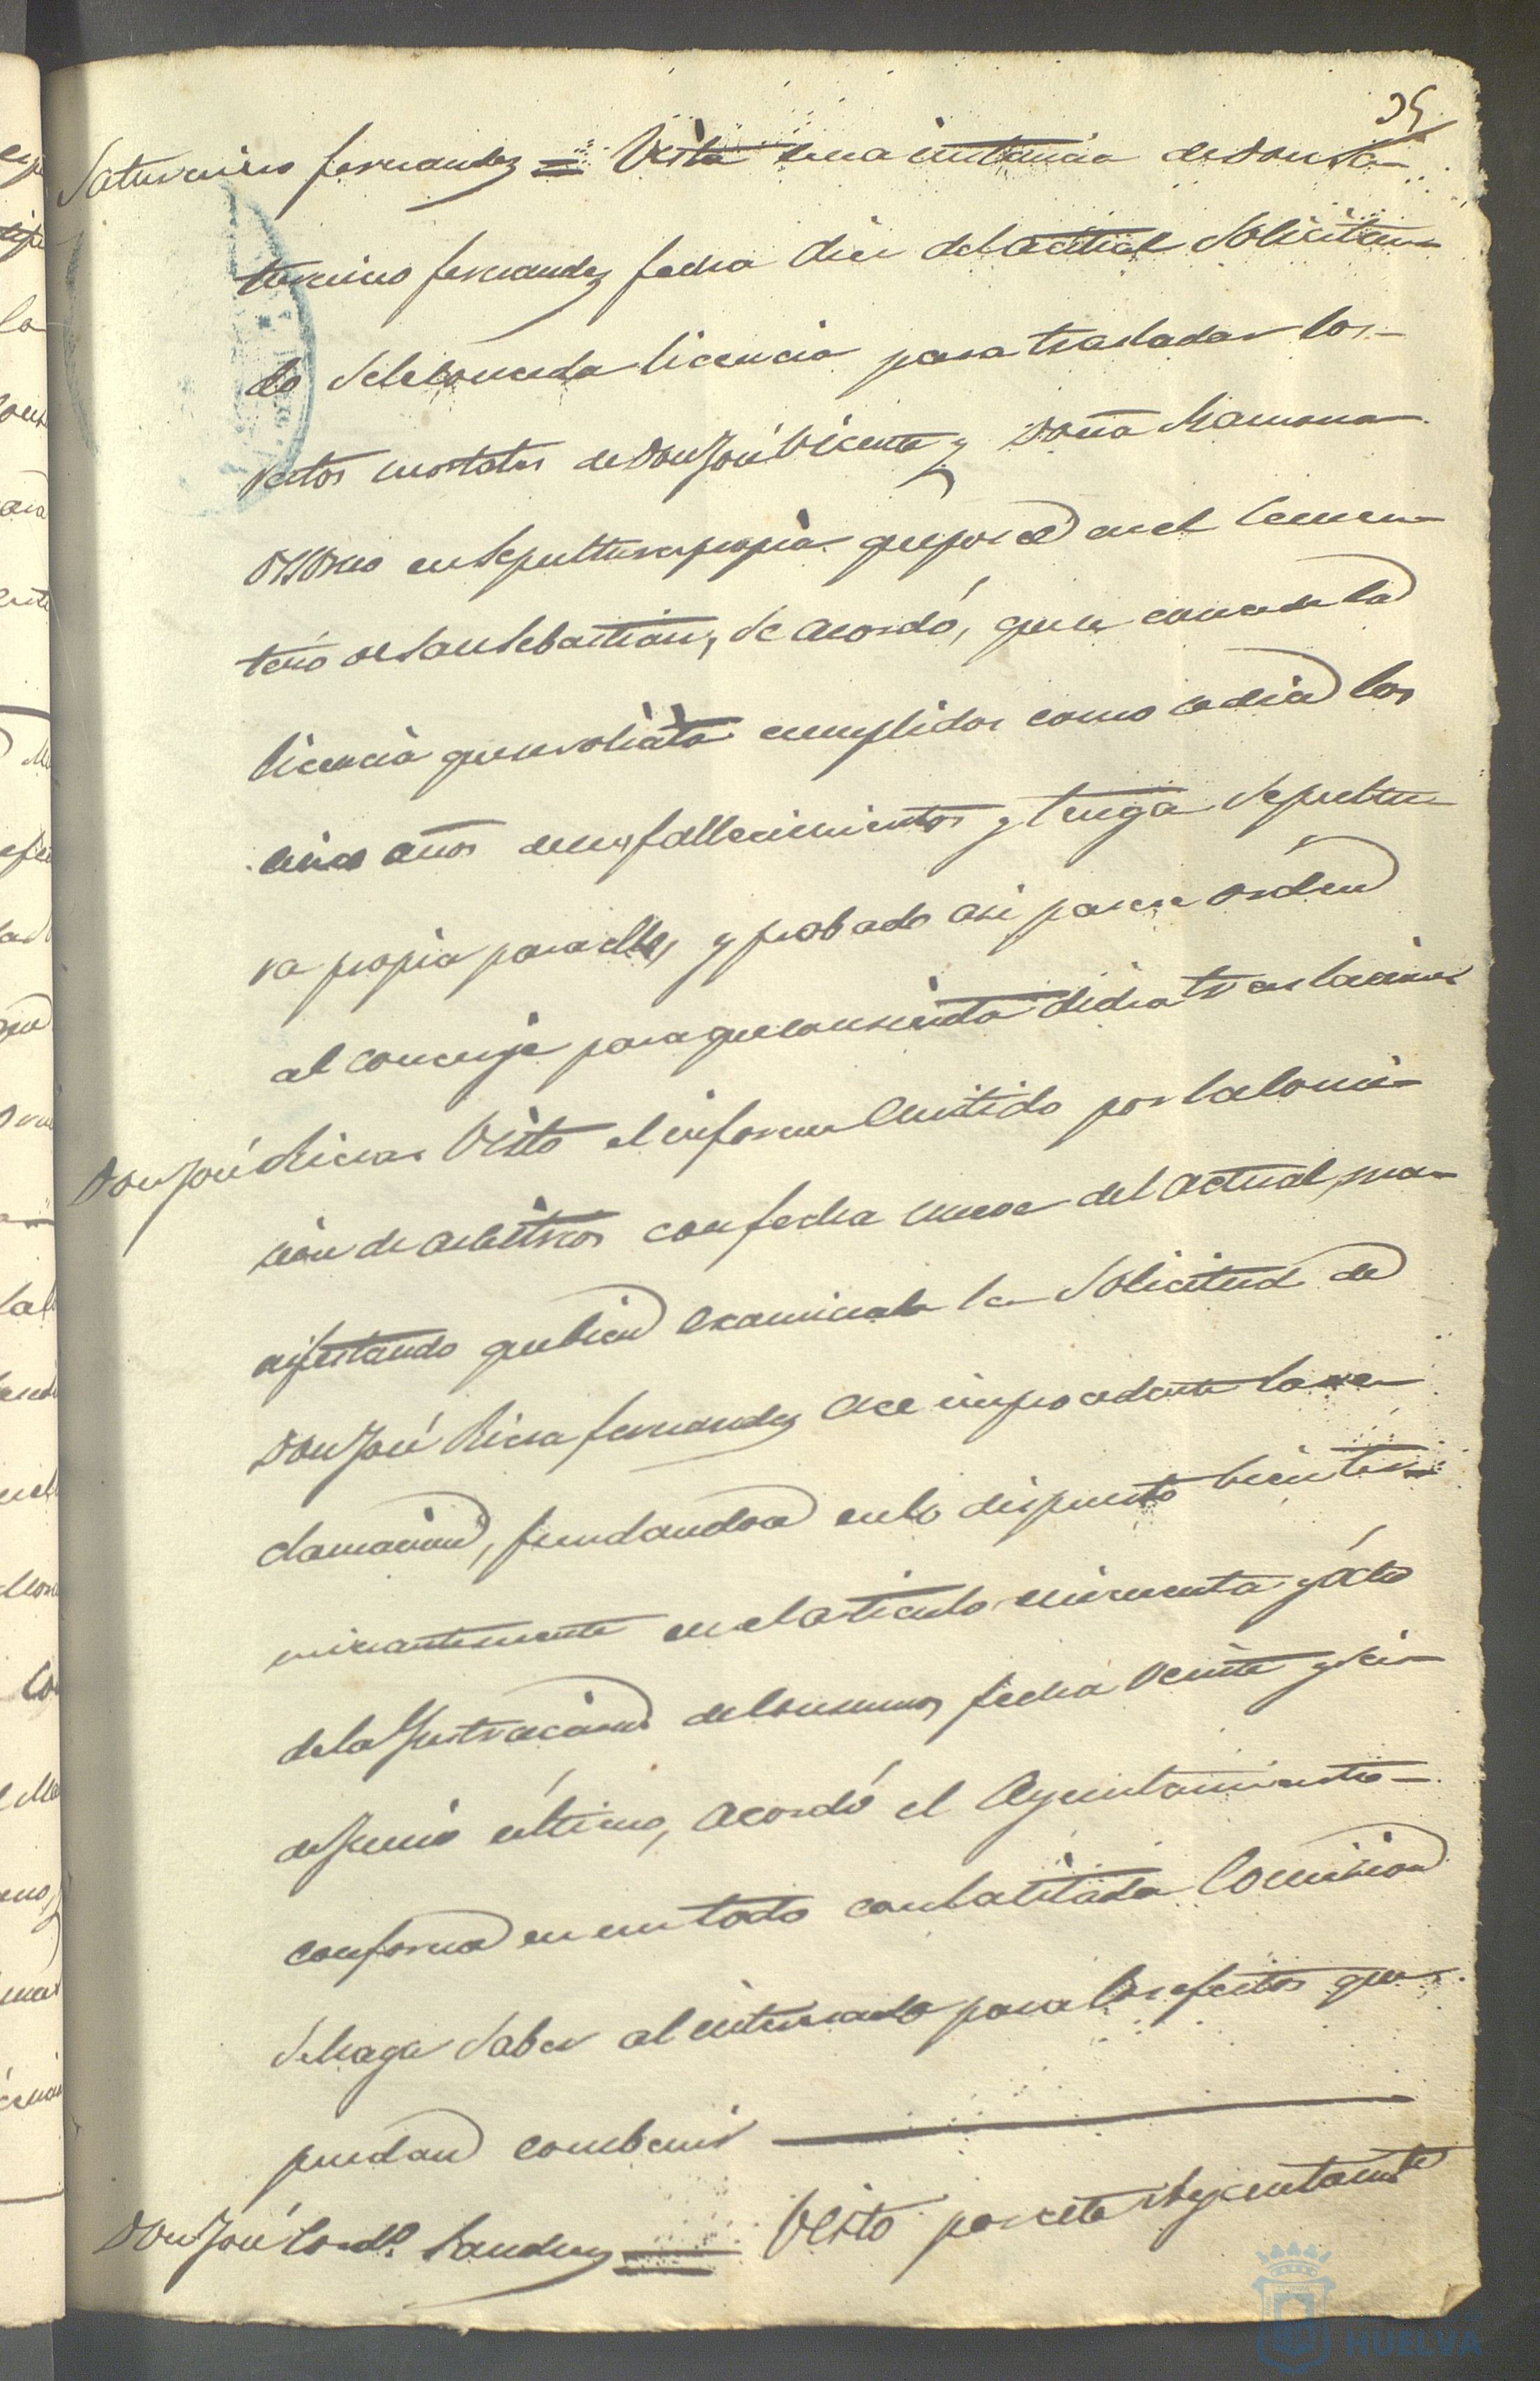 35
Saturnino Fernandez = Vista una instancia de Don Sa-
turnino Fernandez fecha diez del actual Solicitan-
do se le conceda licencia para trasladar los
restos mortales de Don José Vicente y Doña Ramona
Ossorno en Sepultura propia que posee en el Cemen-
terio de San Sebastian, Se acordó, que se conceda la
licencia que se solicita cumplidos como sedia los
cinco años de sus fallecimientos y tenga Sepultu-
ra propia para ellos, y probado asi pase se orden
al conserje para que consienta dicha traslacion
Don José Riera = Visto el informe Emitido por la Comi-
sion de arbitrios con fecha nueve del actual, ma-
nifestando que bien examinada la Solicitud de
Don José Riera Fernandez cree improcedente la re-
clamacion, fundandose en lo dispuesto bien ter-
minantemente en el articulo cincuenta y ócho
de la Instruccion de Consumos fecha veinte y seis
de Junio último, acordó el Ayuntamiento
conforme en un todo con la citada Comision
Se haga Saber al interesado para los efectos que
puedan combenir
Don José Cord.º Sanchez = Visto por este Ayuntamto
HUELVA